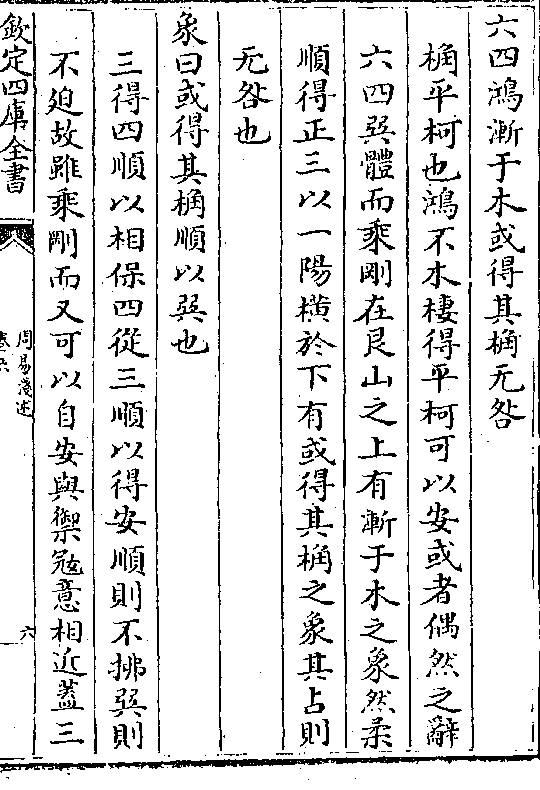 六四鴻漸于木或得其桷无咎
桷平柯也鴻不木棲得平柯可以安或者偶然之辭
六四巽體而乘剛在艮山之上有漸于木之象然柔
順得正三以一陽橫於下有或得其桷之象其占則
无咎也
象曰或得其桷順以巽也
三得四順以相保四從三順以得安順則不拂巽則
不迫故雖乘剛而又可以自安與禦寇意相近蓋三
欽定四庫全書
周易淺述
卷六
六